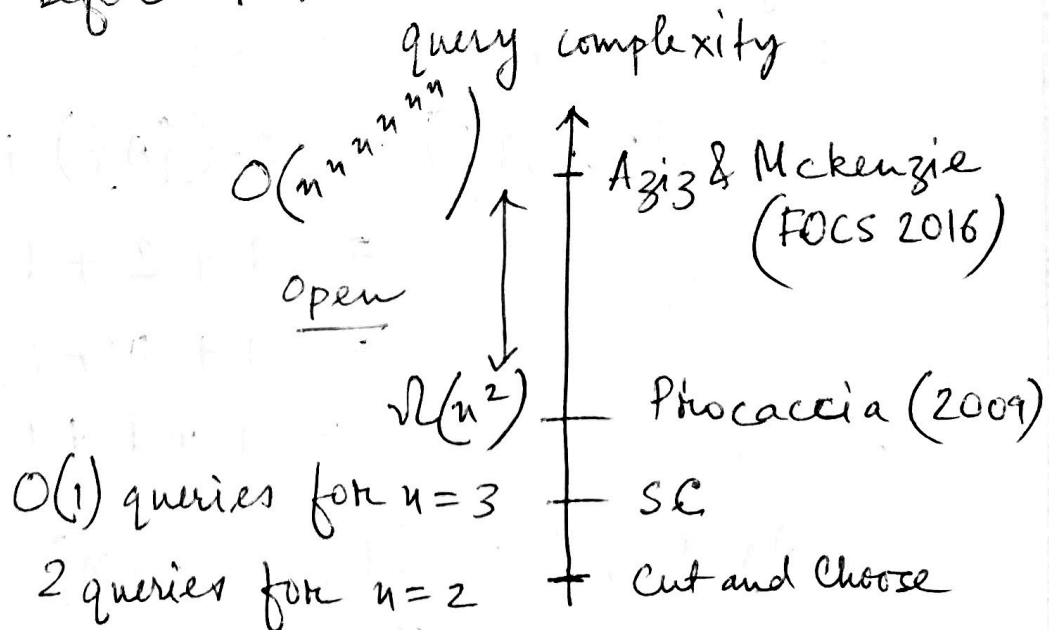 query complexity
O(n^n^n^n^n^n) Aziz & Mckenzie
(FOCS 2016)
Open
Ω(n²) Procaccia (2009)
O(1) queries for n = 3 SC
2 queries for n = 2 Cut and Choose